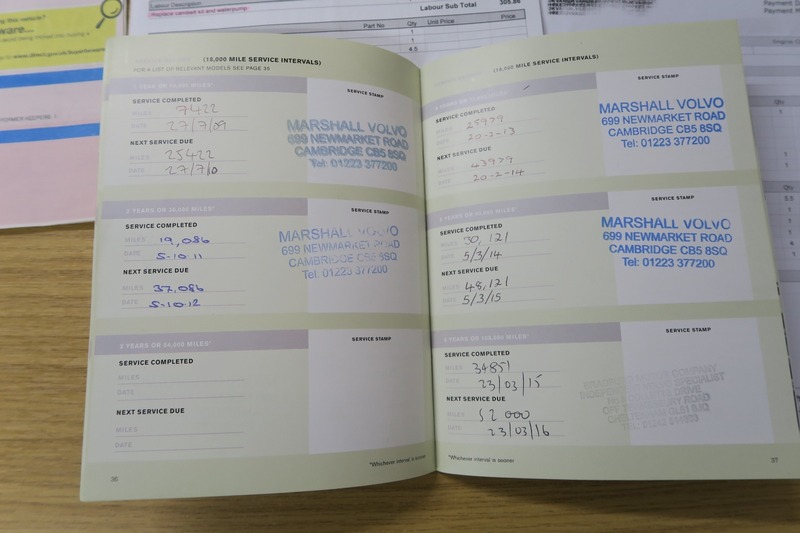 ng this vehicle?
ware...
to www.direct.gov.uk/buyahow
Labour Description
Replace cambelt kit and waterpump
Labour Sub Total 305.86
Part No Qty Unit Price
1
1
4.5
(18,000 MILE SERVICE INTERVALS)
FOR A LIST OF RELEVANT MODELS SEE PAGE 35
SERVICE STAMP
SERVICE COMPLETED
MILES 7422
DATE 27/7/09
NEXT SERVICE DUE
MILES 25422
DATE 27/7/10
MARSHALL VOLVO
699 NEWMARKET ROAD
CAMBRIDGE CB5 8SQ
Tel: 01223 377200
2 YEARS OR 36,000 MILES*
SERVICE STAMP
SERVICE COMPLETED
MILES 19,086
DATE 5-10-11
NEXT SERVICE DUE
MILES 37,086
DATE 5-10-12
MARSHALL VOLVO
699 NEWMARKET ROAD
CAMBRIDGE CB5 8SQ
Tel: 01223 377200
3 YEARS OR 54,000 MILES*
SERVICE STAMP
SERVICE COMPLETED
MILES
DATE
NEXT SERVICE DUE
MILES
DATE
*Whichever interval is sooner
36
(18,000 MILE SERVICE INTERVALS)
SERVICE STAMP
SERVICE COMPLETED
MILES 25979
DATE 20-2-13
NEXT SERVICE DUE
MILES 43979
DATE 20-2-14
MARSHALL VOLVO
699 NEWMARKET ROAD
CAMBRIDGE CB5 8SQ
Tel: 01223 377200
SERVICE STAMP
SERVICE COMPLETED
MILES 30,121
DATE 5/3/14
NEXT SERVICE DUE
MILES 48,121
DATE 5/3/15
MARSHALL VOLVO
699 NEWMARKET ROAD
CAMBRIDGE CB5 8SQ
Tel: 01223 377200
6 YEARS OR 108,000 MILES*
SERVICE STAMP
SERVICE COMPLETED
MILES 34851
DATE 23/03/15
NEXT SERVICE DUE
MILES 52000
DATE 23/03/16
COMPANY
SPECIALIST
DRIVE
OFF ROAD
CHELTENHAM GL51 9JQ
*Whichever interval is sooner
37